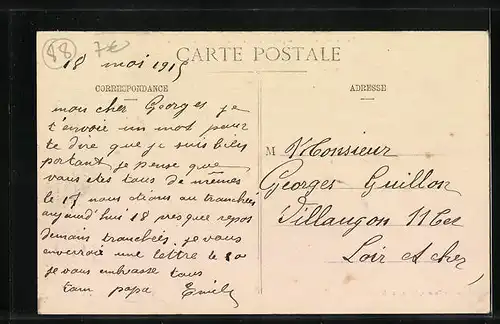 88
7€
CARTE POSTALE
18 moi 1915
CORRESPONDANCE
ADRESSE
mon cher Georges je
t'envoie un mot pour
te dire que je suis bien
portant je pense que
vous etes tous de mêmes
le 17 nous étions au tranchées
aujourd'hui 18 presque repos
demain tranchées. je vous
enverroie une lettre le 20
je vous embrasse tous
ton papa Emile
M Monsieur
Georges Guillon
Loir et cher